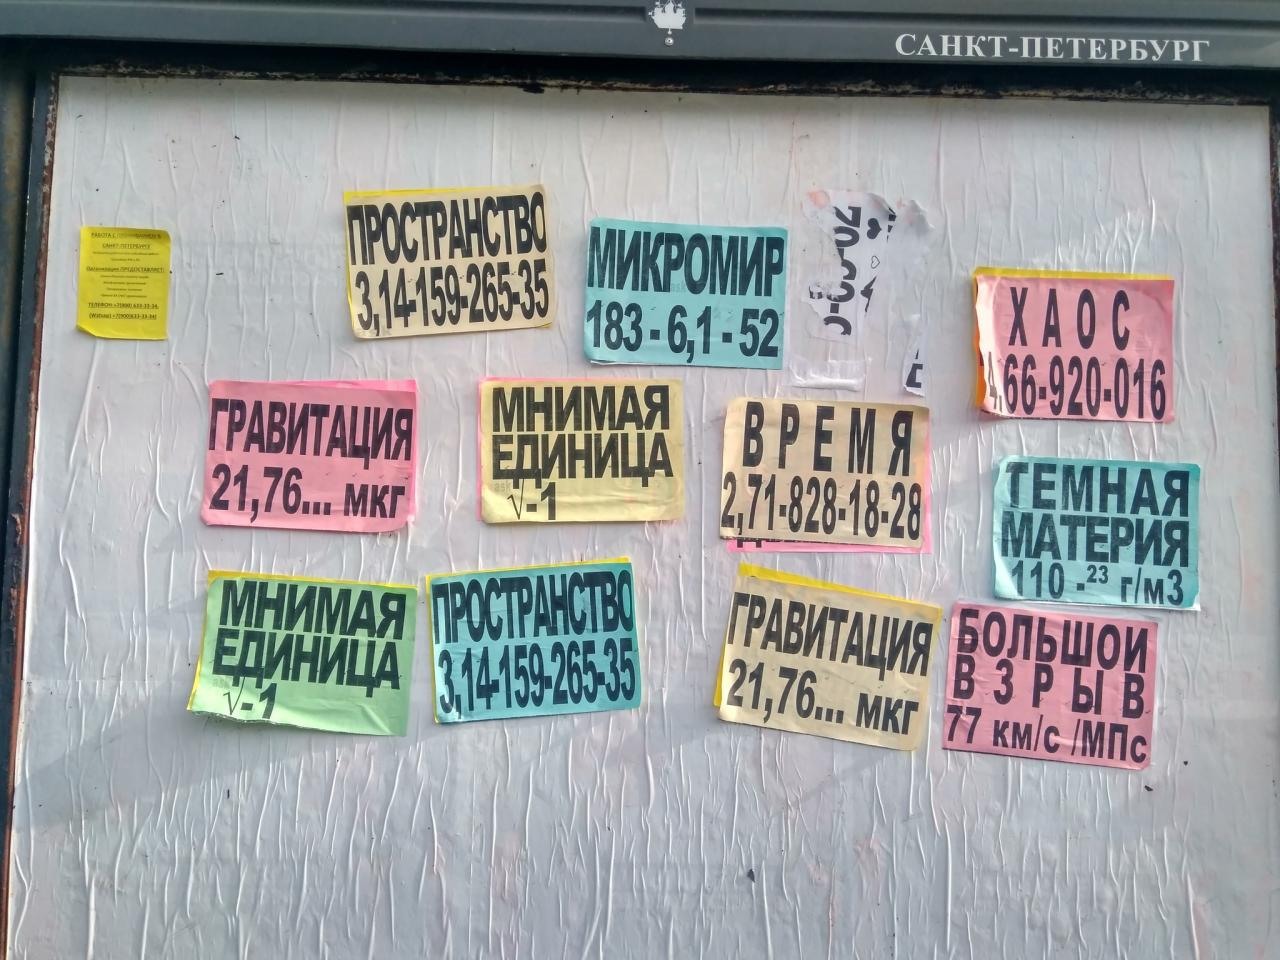 САНКТ-ПЕТЕРБУРГ
РАБОТА С ПРОЖИВАНИЕМ В
САНКТ-ПЕТЕРБУРГЕ
Организация ПРЕДОСТАВЛЯЕТ:
ТЕЛЕФОН +7(900) 633-33-34,
(Watsap) +7(900)633-33-34)
ПРОСТРАНСТВО
3,14-159-265-35
МИКРОМИР
183 - 6,1 - 52
ХАОС
4,66-920-016
ГРАВИТАЦИЯ
21,76... мкг
МНИМАЯ
ЕДИНИЦА
√-1
ВРЕМЯ
2,71-828-18-28
ТЕМНАЯ
МАТЕРИЯ
110 -23 г/м3
МНИМАЯ
ЕДИНИЦА
√-1
ПРОСТРАНСТВО
3,14-159-265-35
ГРАВИТАЦИЯ
21,76... мкг
БОЛЬШОЙ
ВЗРЫВ
77 км/с /МПс